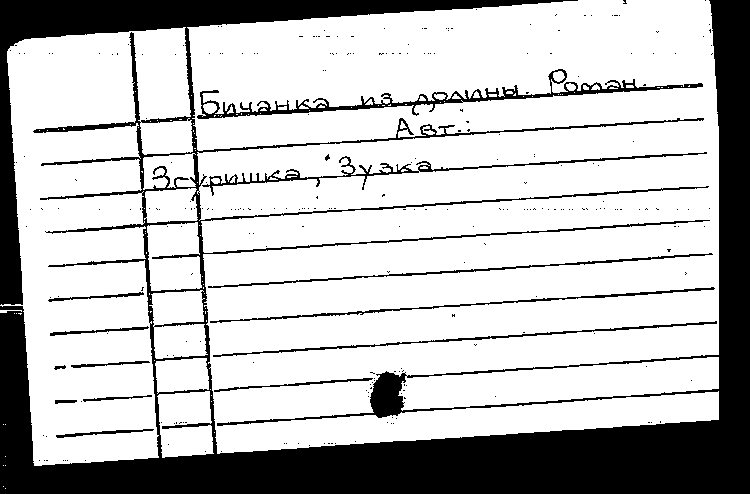 Бичанка из долины. Роман.
Авт.:
Згуришка, Зузка.